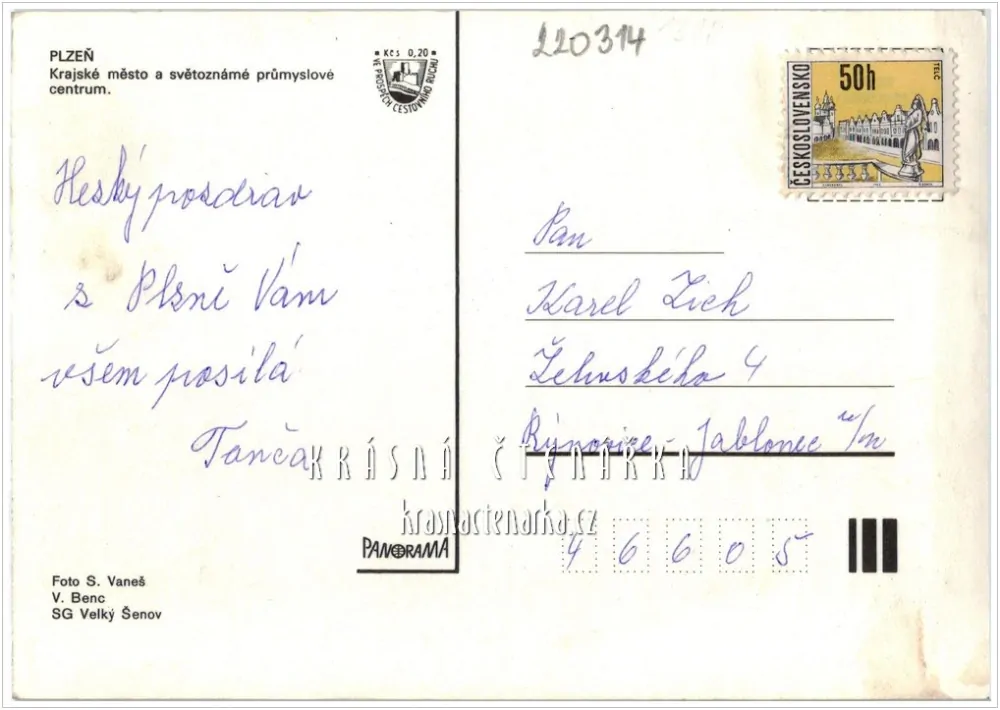 220314
PLZEŇ
Krajské město a světoznámé průmyslové
centrum.
Kčs 0,20
VE PROSPĚCH CESTOVNÍHO RUCHU
ČESKOSLOVENSKO
50h
TELČ
Heský pozdrav
z Plzně Vám
všem posílá
Tanča
Pan
Karel Zich
Želivského 4
Rýnovice Jablonec n/n
KRÁSNÁ ČTENÁŘKA
krasnactenarka.cz
46605
PANORAMA
Foto S. Vaneš
V. Benc
SG Velký Šenov